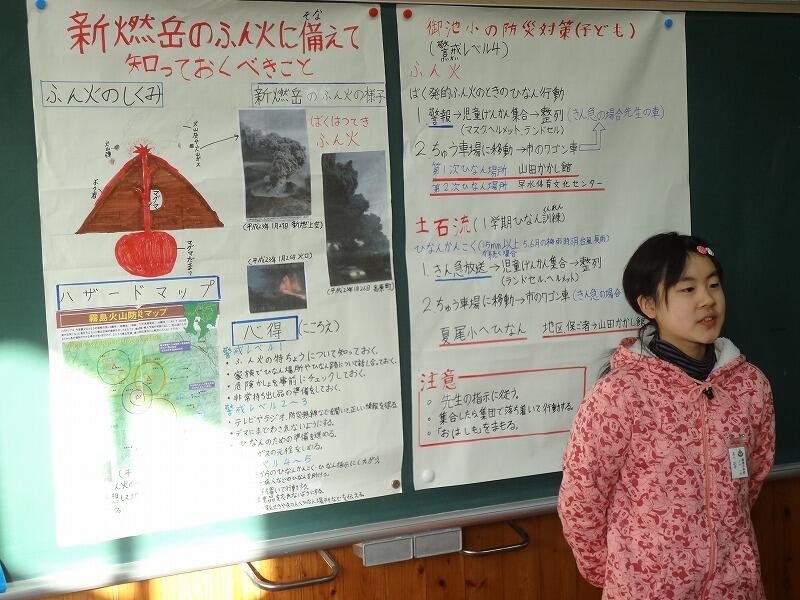 新燃岳のふん火に備えて
そな
知っておくべきこと
ふん火のしくみ
新燃岳のふん火の様子
ばくはつてき
ふん火
マグマ
マグマだまり
(平成23年1月27日 新燃上空)
(平成23年1月26日 火口)
ハザードマップ
霧島火山防災マップ
心得(こころえ)
警戒レベル1
・ふん火の特ちょうについて知っておく。
・家族でひなん場所やひなん路について話し合っておく。
・危険かしょを事前にチェックしておく。
・非常持ち出し品の準備をしておく。
警戒レベル2～3
・テレビやラジオ、防災無線などを聞いて正しい情報を得る
・デマにまどわされないようにする。
・ひなんのための準備を進める。
ガスの元栓をしめる。
ベル4～5
御池小の防災対策(子ども)
(警戒レベル4)
ふん火
ばく発的ふん火のときのひなん行動
1.警報→児童げんかん集合→整列(きん急の場合先生の車)
(マスク、ヘルメット、ランドセル)
2.ちゅう車場に移動→市のワゴン車
第1次ひなん場所 山田かかし館
第2次ひなん場所 早水体育文化センター
土石流(1学期ひなん訓練)
くんれん
ひなんかんこく(15mm以上 5.6月の梅雨時期 台風 長雨)
1.きん急放送→児童げんかん集合→整列
(ランドセル、ヘルメット)
2.ちゅう車場に移動→市のワゴン車(きん急の場合
夏尾小へひなん 地区保ご者→山田かかし館
注意
。先生の指示に従う。
。集合したら集団で落ち着いて行動する。
。「おはしも」をまもる。